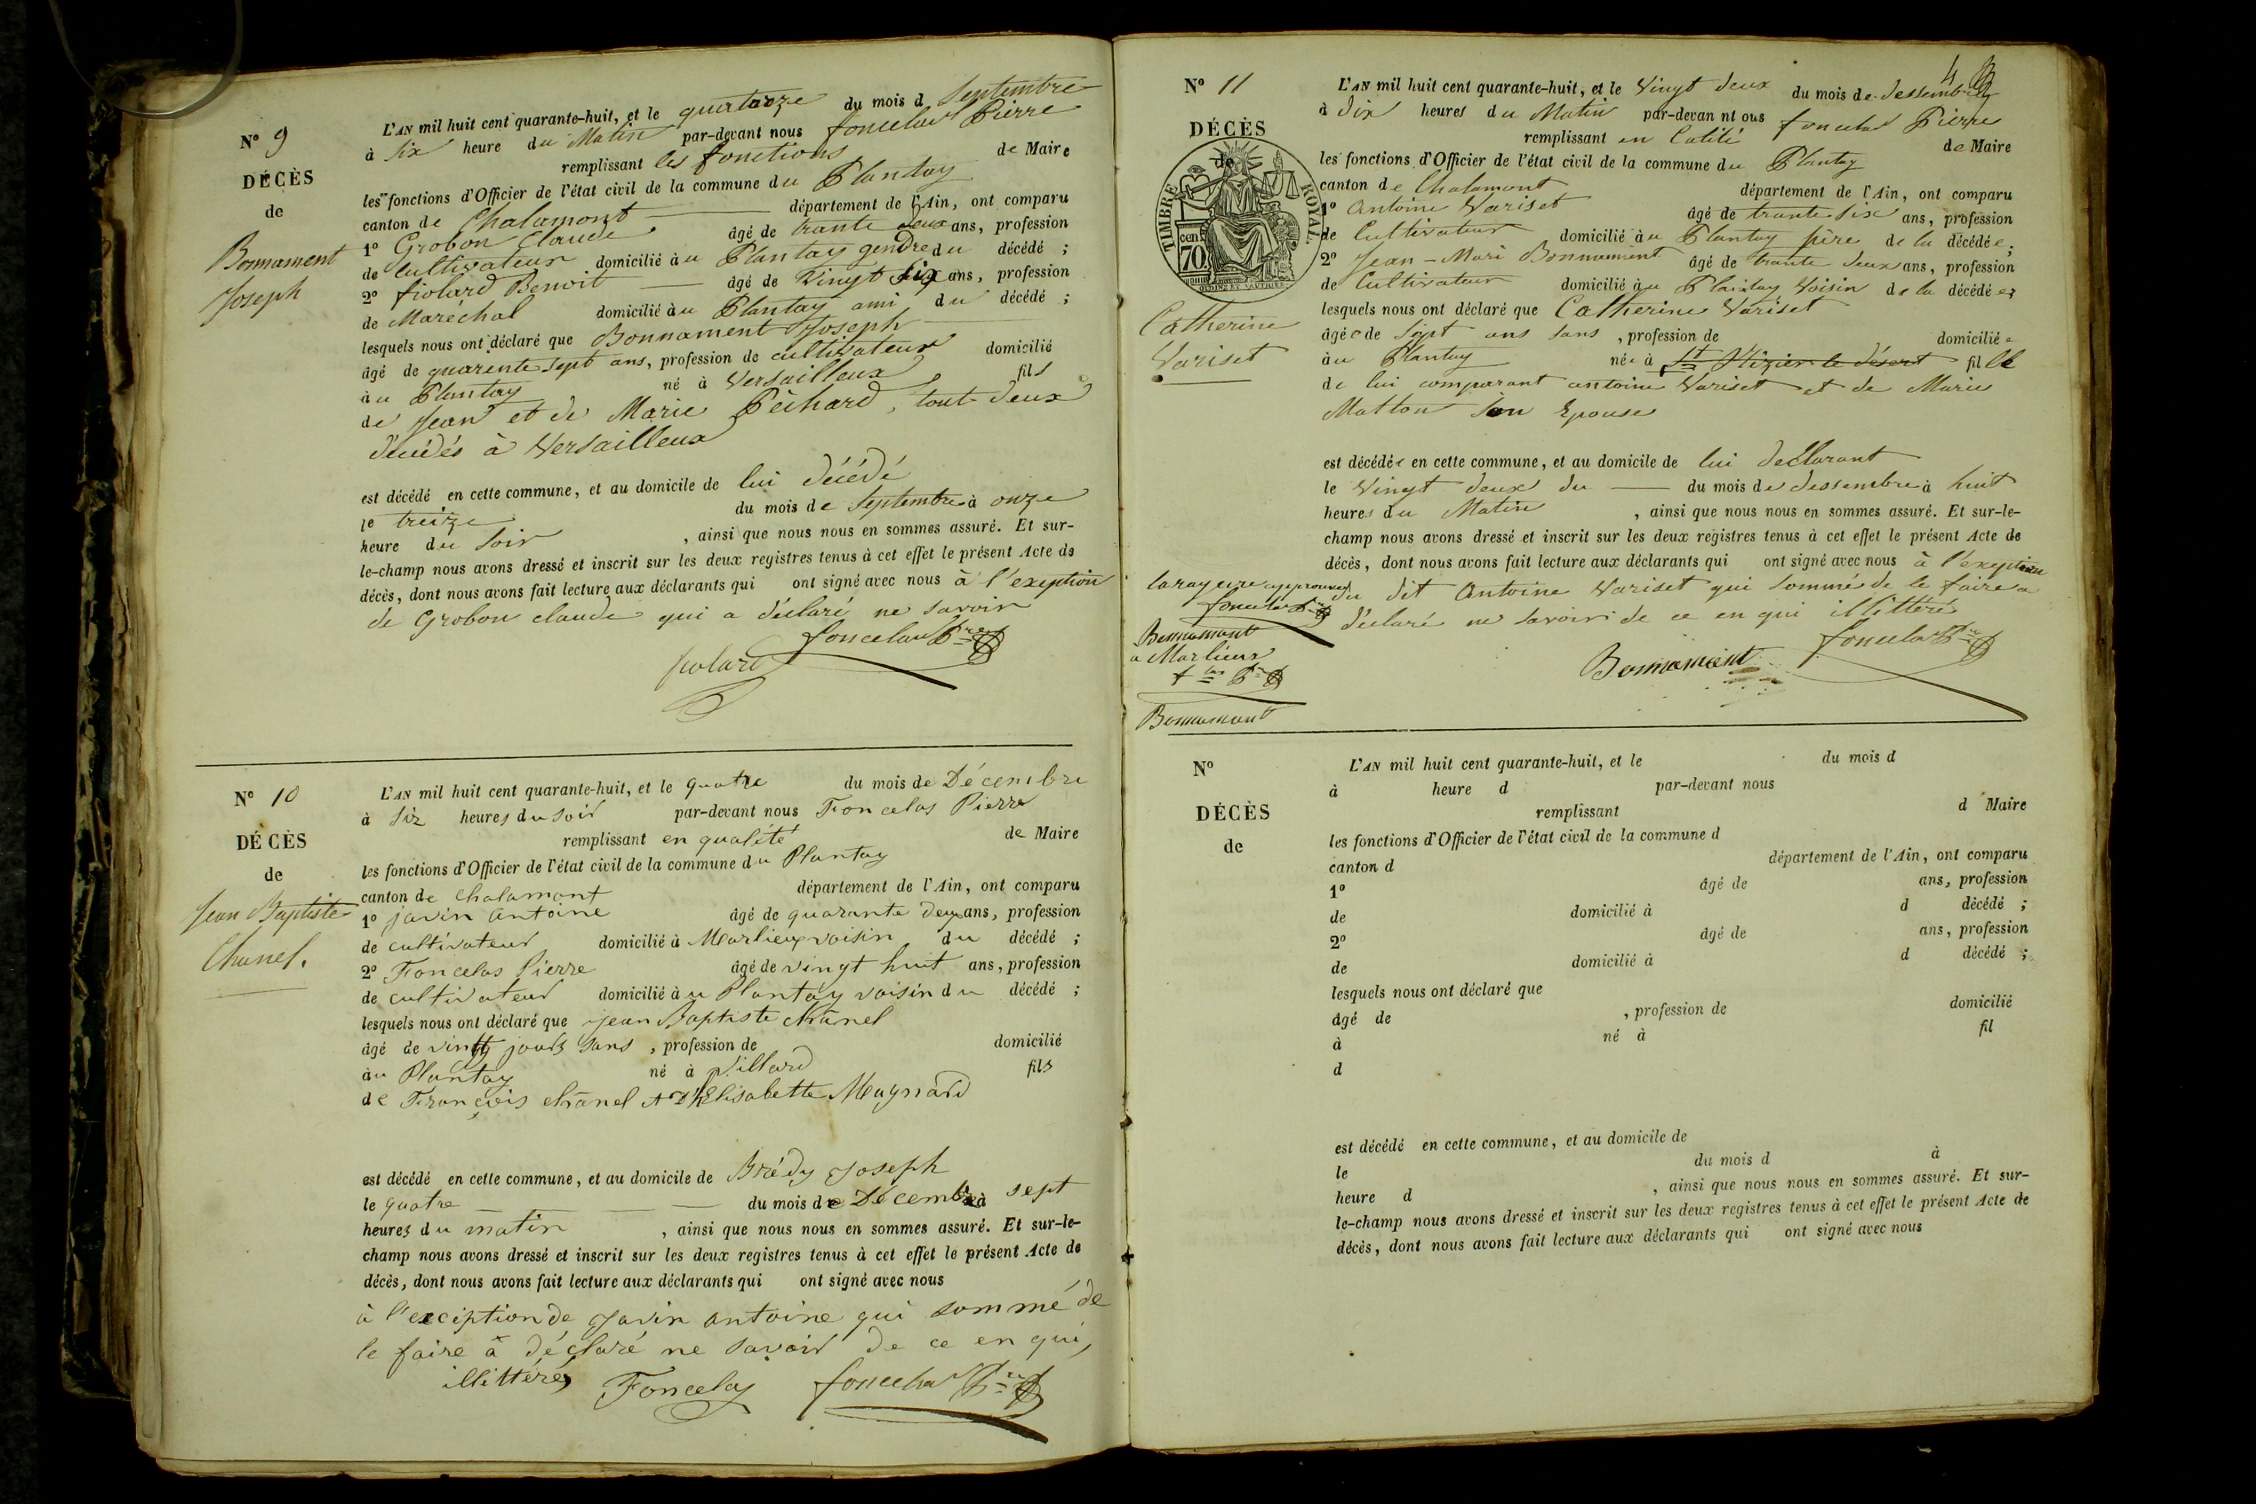 N° 9
DÉCÈS
de
Bonnament
Joseph
L'AN mil huit cent quarante-huit, et le quatorze du mois d Septembre
à Six heure du Matin par-devant nous foncelas Pierre
remplissant les fonctions de Maire
les fonctions d'Officier de l'état civil de la commune du Plantay
canton de Chalamont département de l'Ain, ont comparu
1° Grobon Claude âgé de trante deux ans, profession
de Cultivateur domicilié au Plantay gendre du décédé ;
2° fiolard Benoit âgé de Vingt Six ans, profession
de Maréchal domicilié au Plantay ami du décédé ;
lesquels nous ont déclaré que Bonnament Joseph
âgé de quarente sept ans, profession de cultivateur domicilié
au Plantay né à Versailleux fils
de Jean et de Marie Péchard, tout deux
décédés à Versailleux
est décédé en cette commune, et au domicile de lui décédé
le treize du mois de Septembre à onze
heure du Soir , ainsi que nous nous en sommes assuré. Et sur-
le-champ nous avons dressé et inscrit sur les deux registres tenus à cet effet le présent Acte de
décès, dont nous avons fait lecture aux déclarants qui ont signé avec nous à l'exeption
de Grobon claude qui a déclaré ne Savoir
foncelas Pre
fiolard
N° 10
DÉCÈS
de
Jean Baptiste
Chanel.
L'AN mil huit cent quarante-huit, et le quatre du mois de Décembre
à Six heures du soir par-devant nous Foncelas Pierre
remplissant en qualité de Maire
les fonctions d'Officier de l'état civil de la commune du Plantay
canton de chalamont département de l'Ain, ont comparu
1° javin antoine âgé de quarante deux ans, profession
de cultivateur domicilié à Marlieux voisin du décédé ;
2° Foncelas Pierre âgé de vingt huit ans, profession
de cultivateur domicilié au Plantay voisin du décédé ;
lesquels nous ont déclaré que jean Baptiste chanel
âgé de vingt jours sans , profession de domicilié
au Plantay né à villard fils
de François chanel et d'Elisabette Maynard
est décédé en cette commune, et au domicile de Brédy Joseph
le quatre du mois de Décembre à sept
heures du matin , ainsi que nous nous en sommes assuré. Et sur-le-
champ nous avons dressé et inscrit sur les deux registres tenus à cet effet le présent Acte de
décès, dont nous avons fait lecture aux déclarants qui ont signé avec nous
à l'exciption de Javin antoine qui sommé de
le faire à déclaré ne savoir de ce en qui,
illittéré, Foncelas foncelas Pre
4
N° 11
DÉCÈS
de
TIMBRE ROYAL
70 cent
Catherine
Variset
L'AN mil huit cent quarante-huit, et le Vingt deux du mois de dessembre
à dix heures du Matin par-devan nt ous foncelas Pierre
remplissant en Calité de Maire
les fonctions d'Officier de l'état civil de la commune du Plantay
canton de Chalamont département de l'Ain, ont comparu
1° Antoine Variset âgé de trante Six ans, profession
de Cultivateur domicilié au Plantay père de la décédée ;
2° Jean-Mari Bonnament âgé de trante deux ans, profession
de Cultivateur domicilié au Plantay Voisin de la décédée ;
lesquels nous ont déclaré que Catherine Variset
âgée de Sept ans Sans , profession de domiciliée
au Plantay née à St Nizier le désert fille
de lui comparant antoine Variset et de Marie
Matton Son Epouse
est décédée en cette commune, et au domicile de lui declarant
le Vingt deux du du mois de dessembre à huit
heures du Matin , ainsi que nous nous en sommes assuré. Et sur-le-
champ nous avons dressé et inscrit sur les deux registres tenus à cet effet le présent Acte de
décès, dont nous avons fait lecture aux déclarants qui ont signé avec nous à l'exeption
du dit Antoine Variset qui Sommé de le faire a
déclaré ne Savoir de ce en qui illittéré
foncelas Pre
Bonnament
la rayeure approuvée
foncelas Pre
Bonnamant
a Marlieux
Bonnamant
N°
DÉCÈS
de
L'AN mil huit cent quarante-huit, et le du mois d
à heure d par-devant nous
remplissant d Maire
les fonctions d'Officier de l'état civil de la commune d
canton d département de l'Ain, ont comparu
1° âgé de ans, profession
de domicilié à d décédé ;
2° âgé de ans, profession
de domicilié à d décédé ;
lesquels nous ont déclaré que
âgé de , profession de domicilié
à né à fil
d
est décédé en cette commune, et au domicile de
le du mois d à
heure d , ainsi que nous nous en sommes assuré. Et sur-
le-champ nous avons dressé et inscrit sur les deux registres tenus à cet effet le présent Acte de
décès, dont nous avons fait lecture aux déclarants qui ont signé avec nous